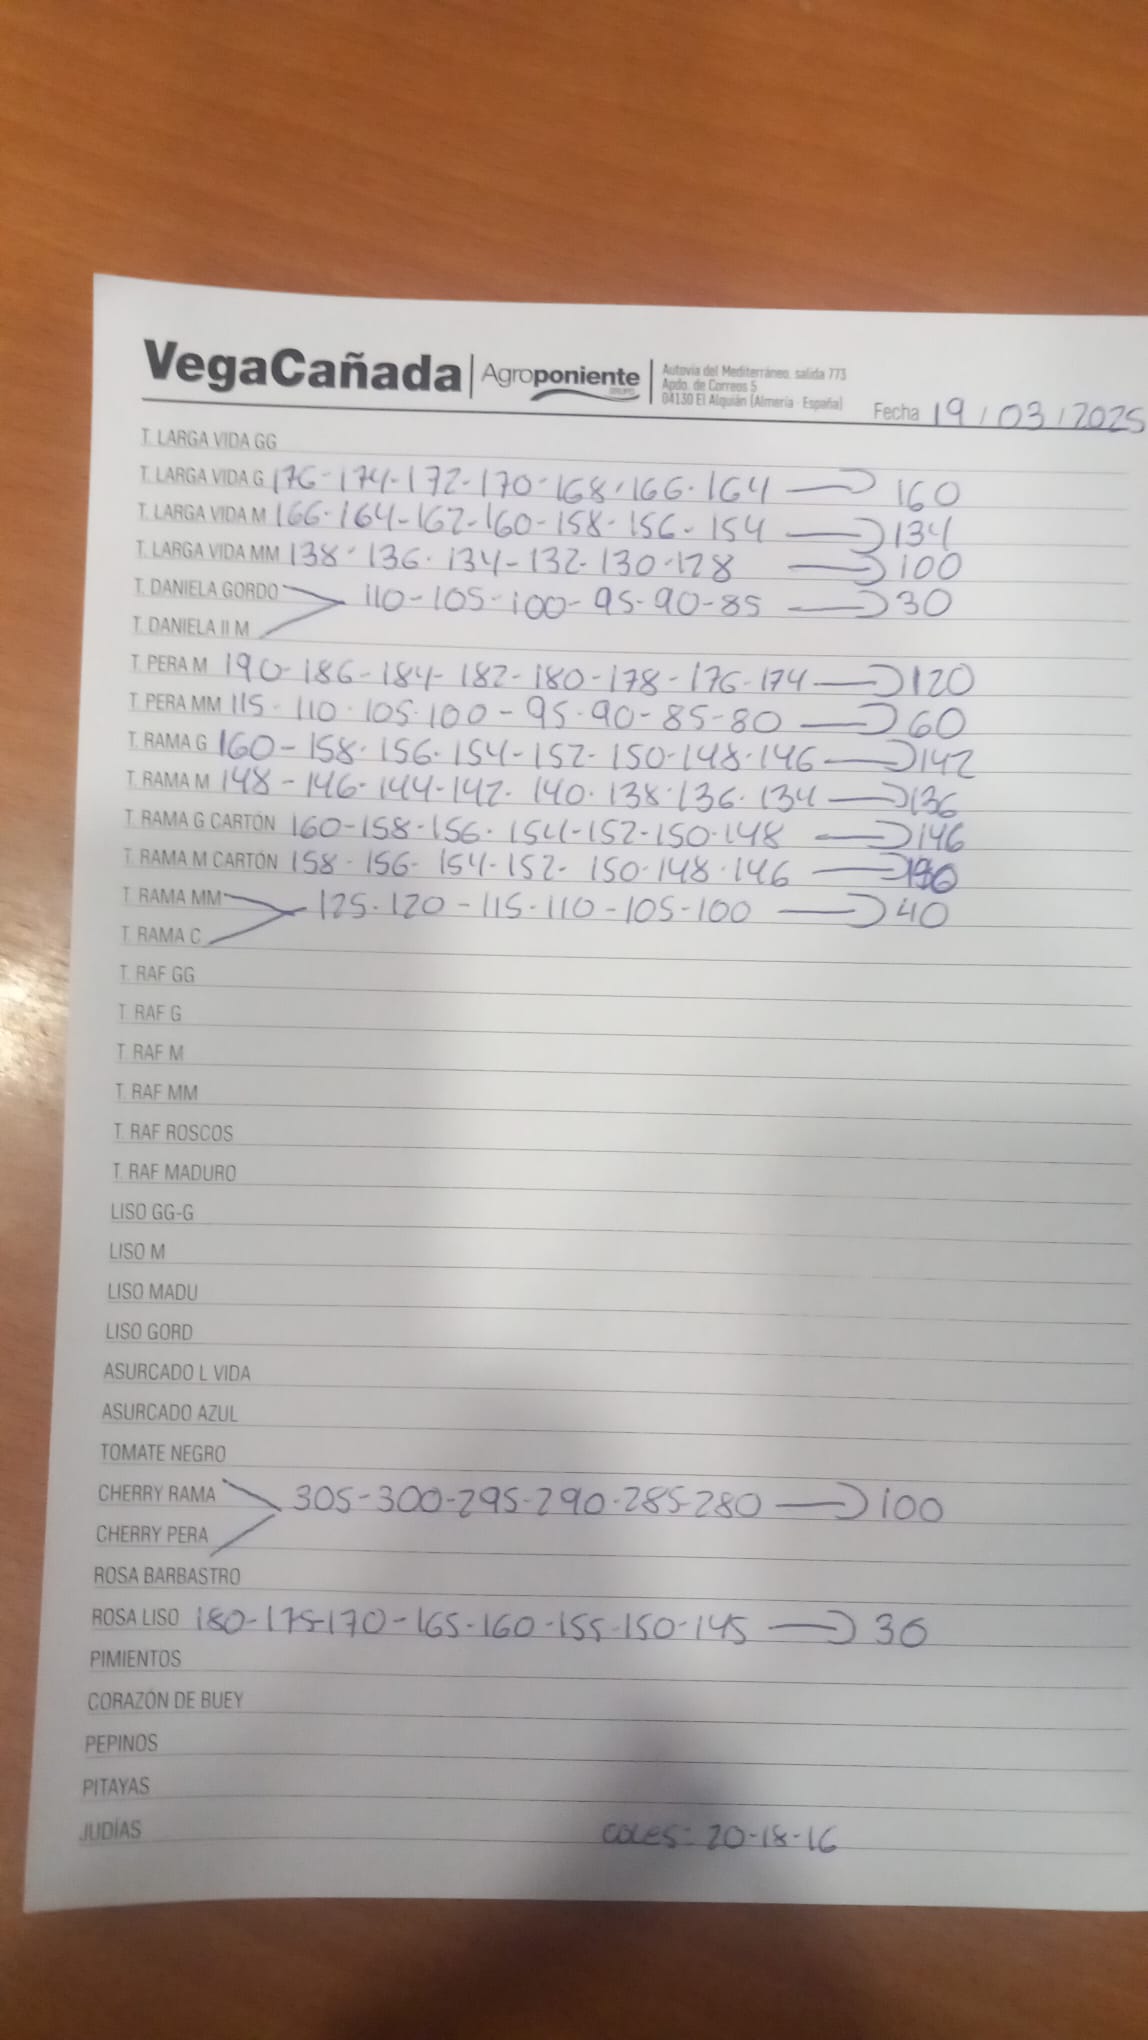 VegaCañada | Agroponiente GRUPO | Autovía del Mediterráneo, salida 773
Apdo. de Correos 5
04130 El Alquián (Almería - España)
Fecha 19 / 03 / 2025
T. LARGA VIDA GG
T. LARGA VIDA G 176-174-172-170-168-166-164 → 160
T. LARGA VIDA M 166-164-162-160-158-156-154 → 134
T. LARGA VIDA MM 138-136-134-132-130-128 → 100
T. DANIELA GORDO 110-105-100-95-90-85 → 30
T. DANIELA II M
T. PERA M 190-186-184-182-180-178-176-174 → 120
T. PERA MM 115-110-105-100-95-90-85-80 → 60
T. RAMA G 160-158-156-154-152-150-148-146 → 142
T. RAMA M 148-146-144-142-140-138-136-134 → 136
T. RAMA G CARTÓN 160-158-156-154-152-150-148 → 146
T. RAMA M CARTÓN 158-156-154-152-150-148-146 →
T. RAMA MM 125-120-115-110-105-100 → 40
T. RAMA C
T. RAF GG
T. RAF G
T. RAF M
T. RAF MM
T. RAF ROSCOS
T. RAF MADURO
LISO GG-G
LISO M
LISO MADU
LISO GORD
ASURCADO L VIDA
ASURCADO AZUL
TOMATE NEGRO
CHERRY RAMA 305-300-295-290-285-280 → 100
CHERRY PERA
ROSA BARBASTRO
ROSA LISO 180-175-170-165-160-155-150-145 → 30
PIMIENTOS
CORAZÓN DE BUEY
PEPINOS
PITAYAS
JUDÍAS
COLES: 20-18-16